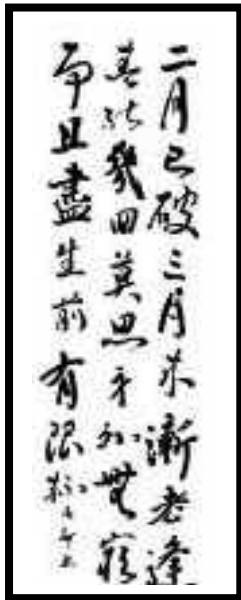 二月已破三月来漸老逢
春能幾回莫思身外無窮
事且盡生前有限杯